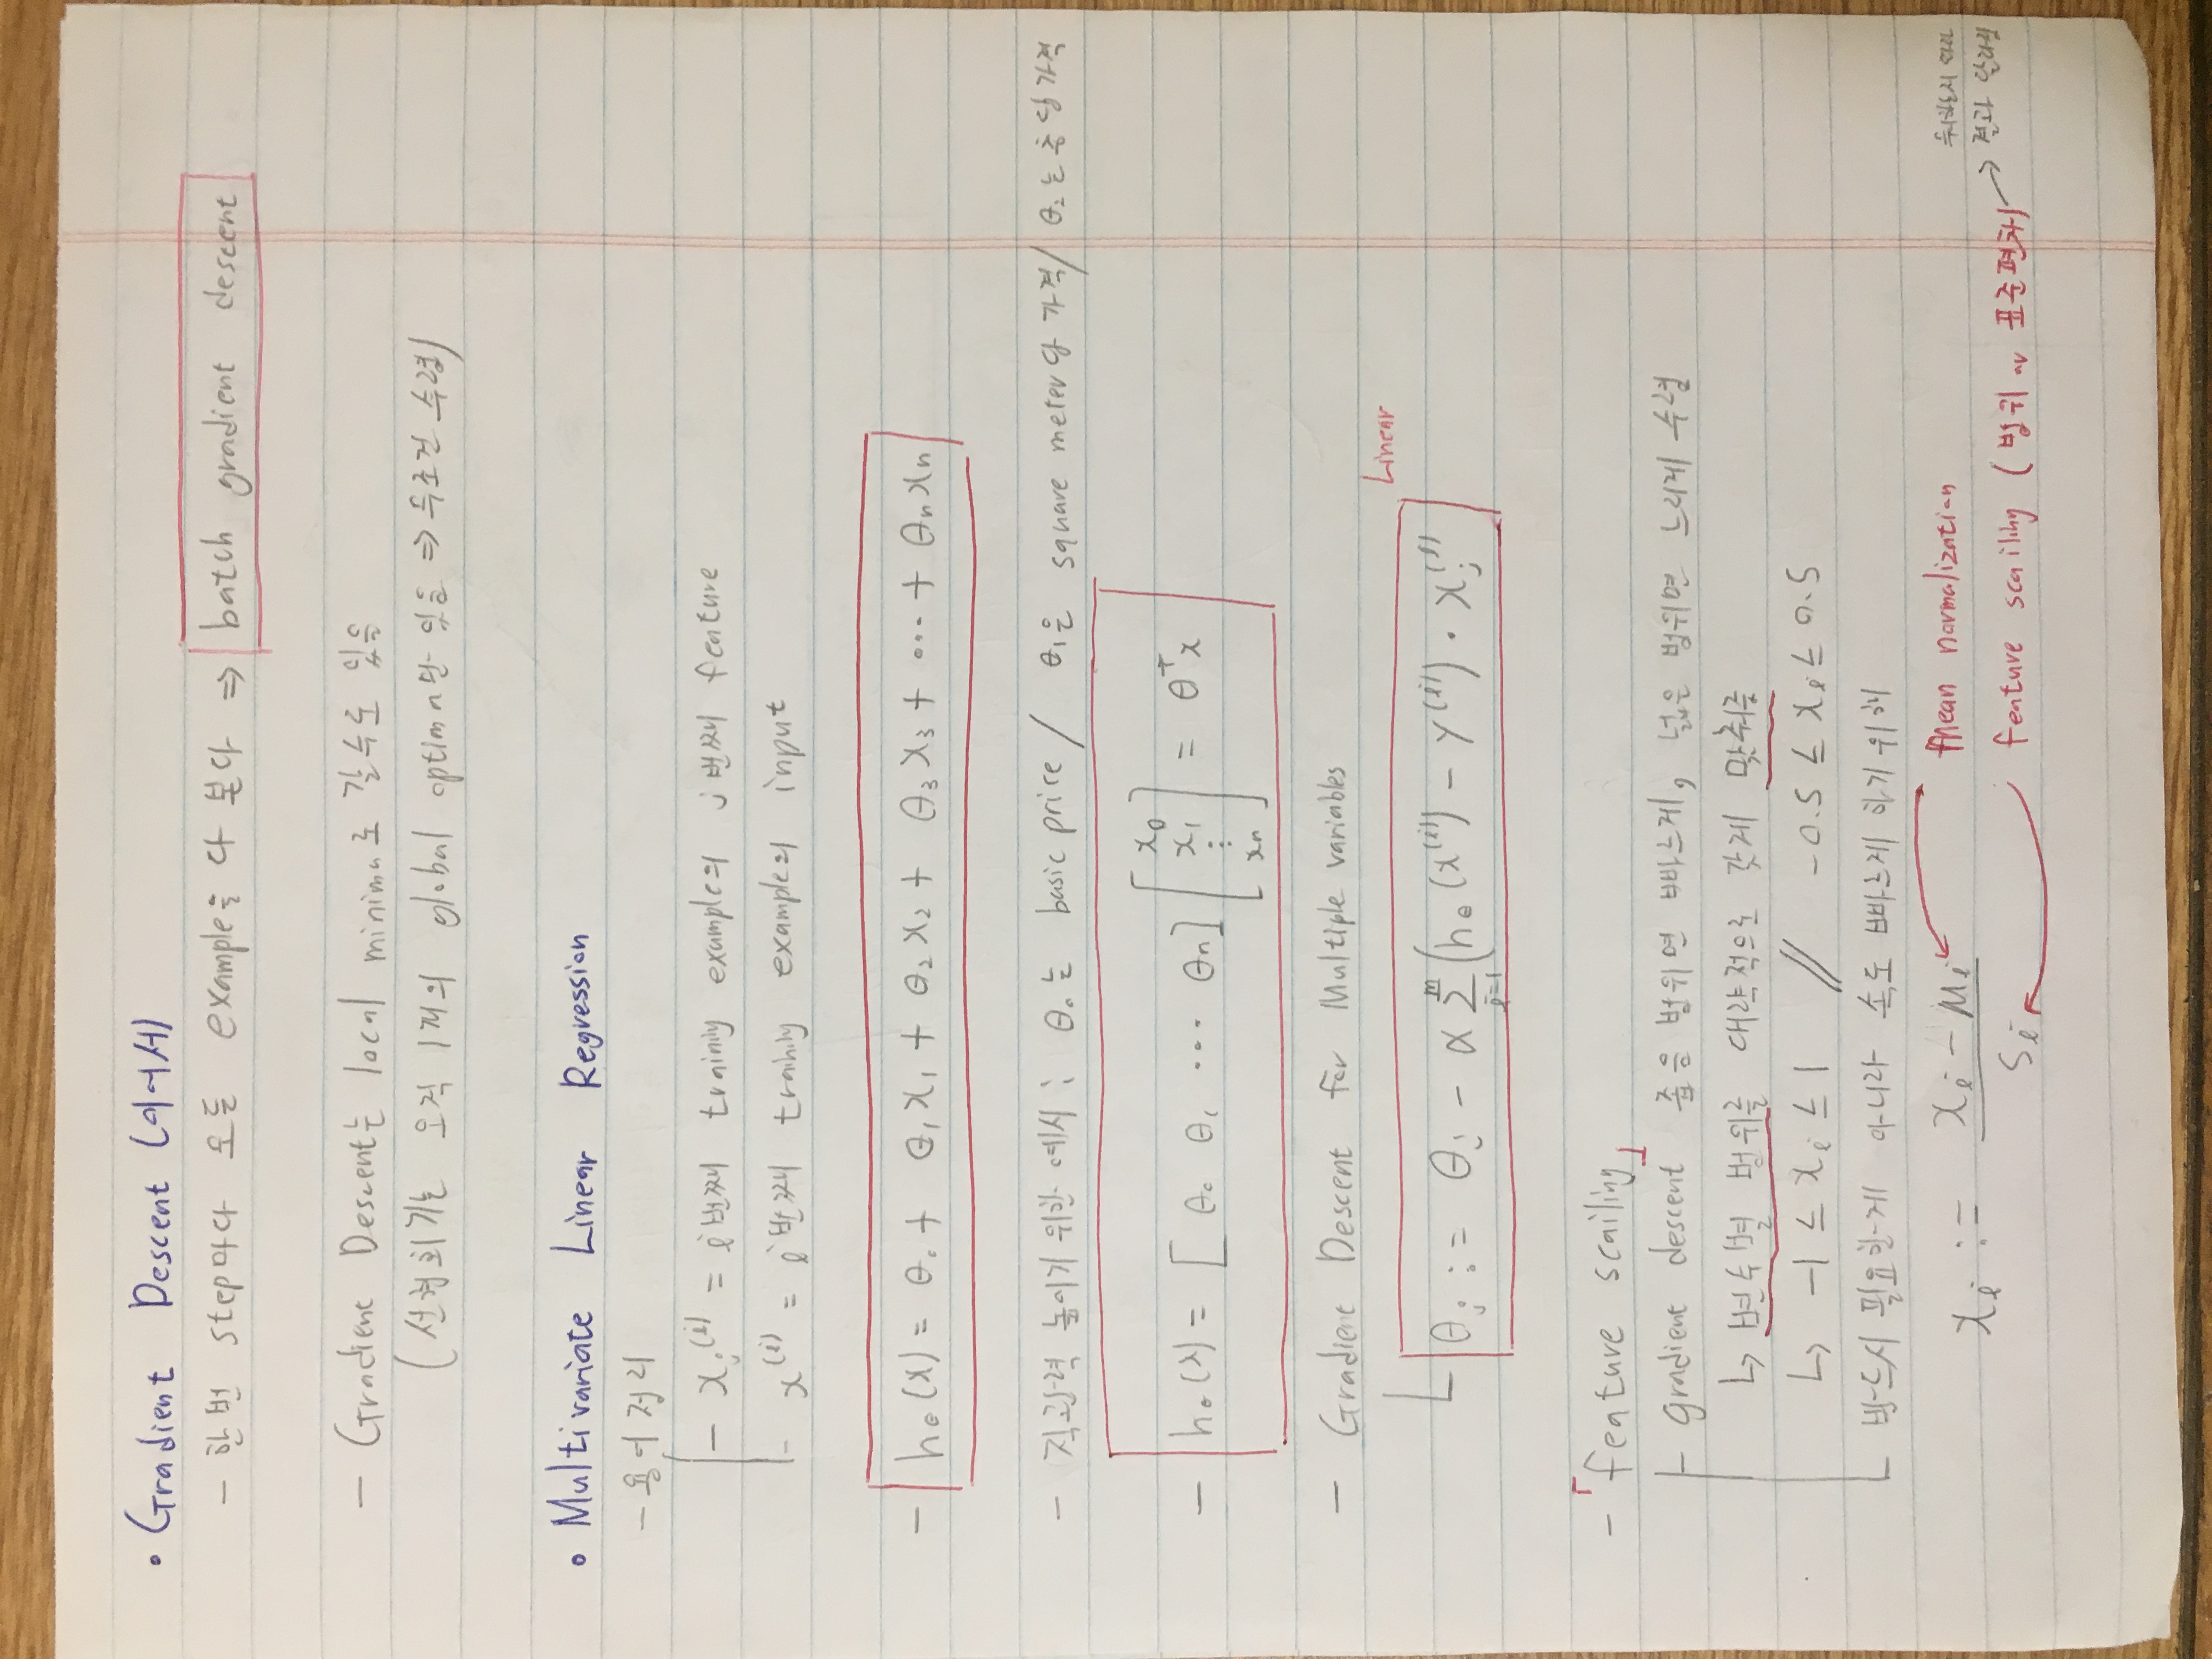 • Gradient Descent (이어서)
- 한번 step마다 모든 example을 다 본다 ⇒ batch gradient descent
- Gradient Descent는 local minima로 갈수도 있음
(선형회귀는 오직 1개의 global optima만 있음 ⇒ 무조건 수렴)
• Multivariate Linear Regression
- 용어정리
- xⱼ⁽ⁱ⁾ = i번째 training example의 j번째 feature
- x⁽ⁱ⁾ = i번째 training example의 input
- hθ(x) = θ₀ + θ₁x₁ + θ₂x₂ + θ₃x₃ + ··· + θₙxₙ
- 직관력 높이기 위한 예시 : θ₀는 basic price / θ₁은 square meter당 가격 / θ₂는 층당 가격
- hθ(x) = [θ₀ θ₁ ··· θₙ] [x₀ x₁ ⋮ xₙ] = θᵀx
- Gradient Descent for Multiple variables
Linear
θⱼ := θⱼ - α Σᵢ₌₁ᵐ (hθ(x⁽ⁱ⁾) - y⁽ⁱ⁾) · xⱼ⁽ⁱ⁾
- 「feature scailing」
- gradient descent 좁은 범위면 빠르게, 넓은 범위면 느리게 수렴
↳ 변수별 범위를 대략적으로 갖게 맞춰줌
↳ -1 ≤ xᵢ ≤ 1 // -0.5 ≤ xᵢ ≤ 0.5
반드시 필요한게 아니라 속도 빠르게 하기 위해
xᵢ := (xᵢ - μᵢ) / sᵢ
mean normalization
feature scailing (범위 or 표준편차) → 결과 달라짐